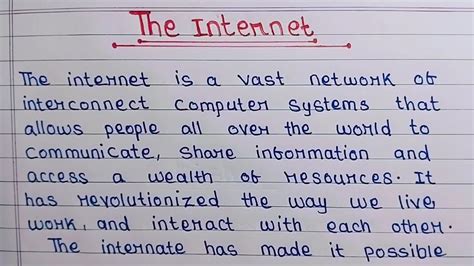 The Internet
The internet is a vast network of
interconnect computer systems that
allows people all over the world to
communicate, share information and
access a wealth of resources. It
has revolutionized the way we live
work, and interact with each other.
The internate has made it possible